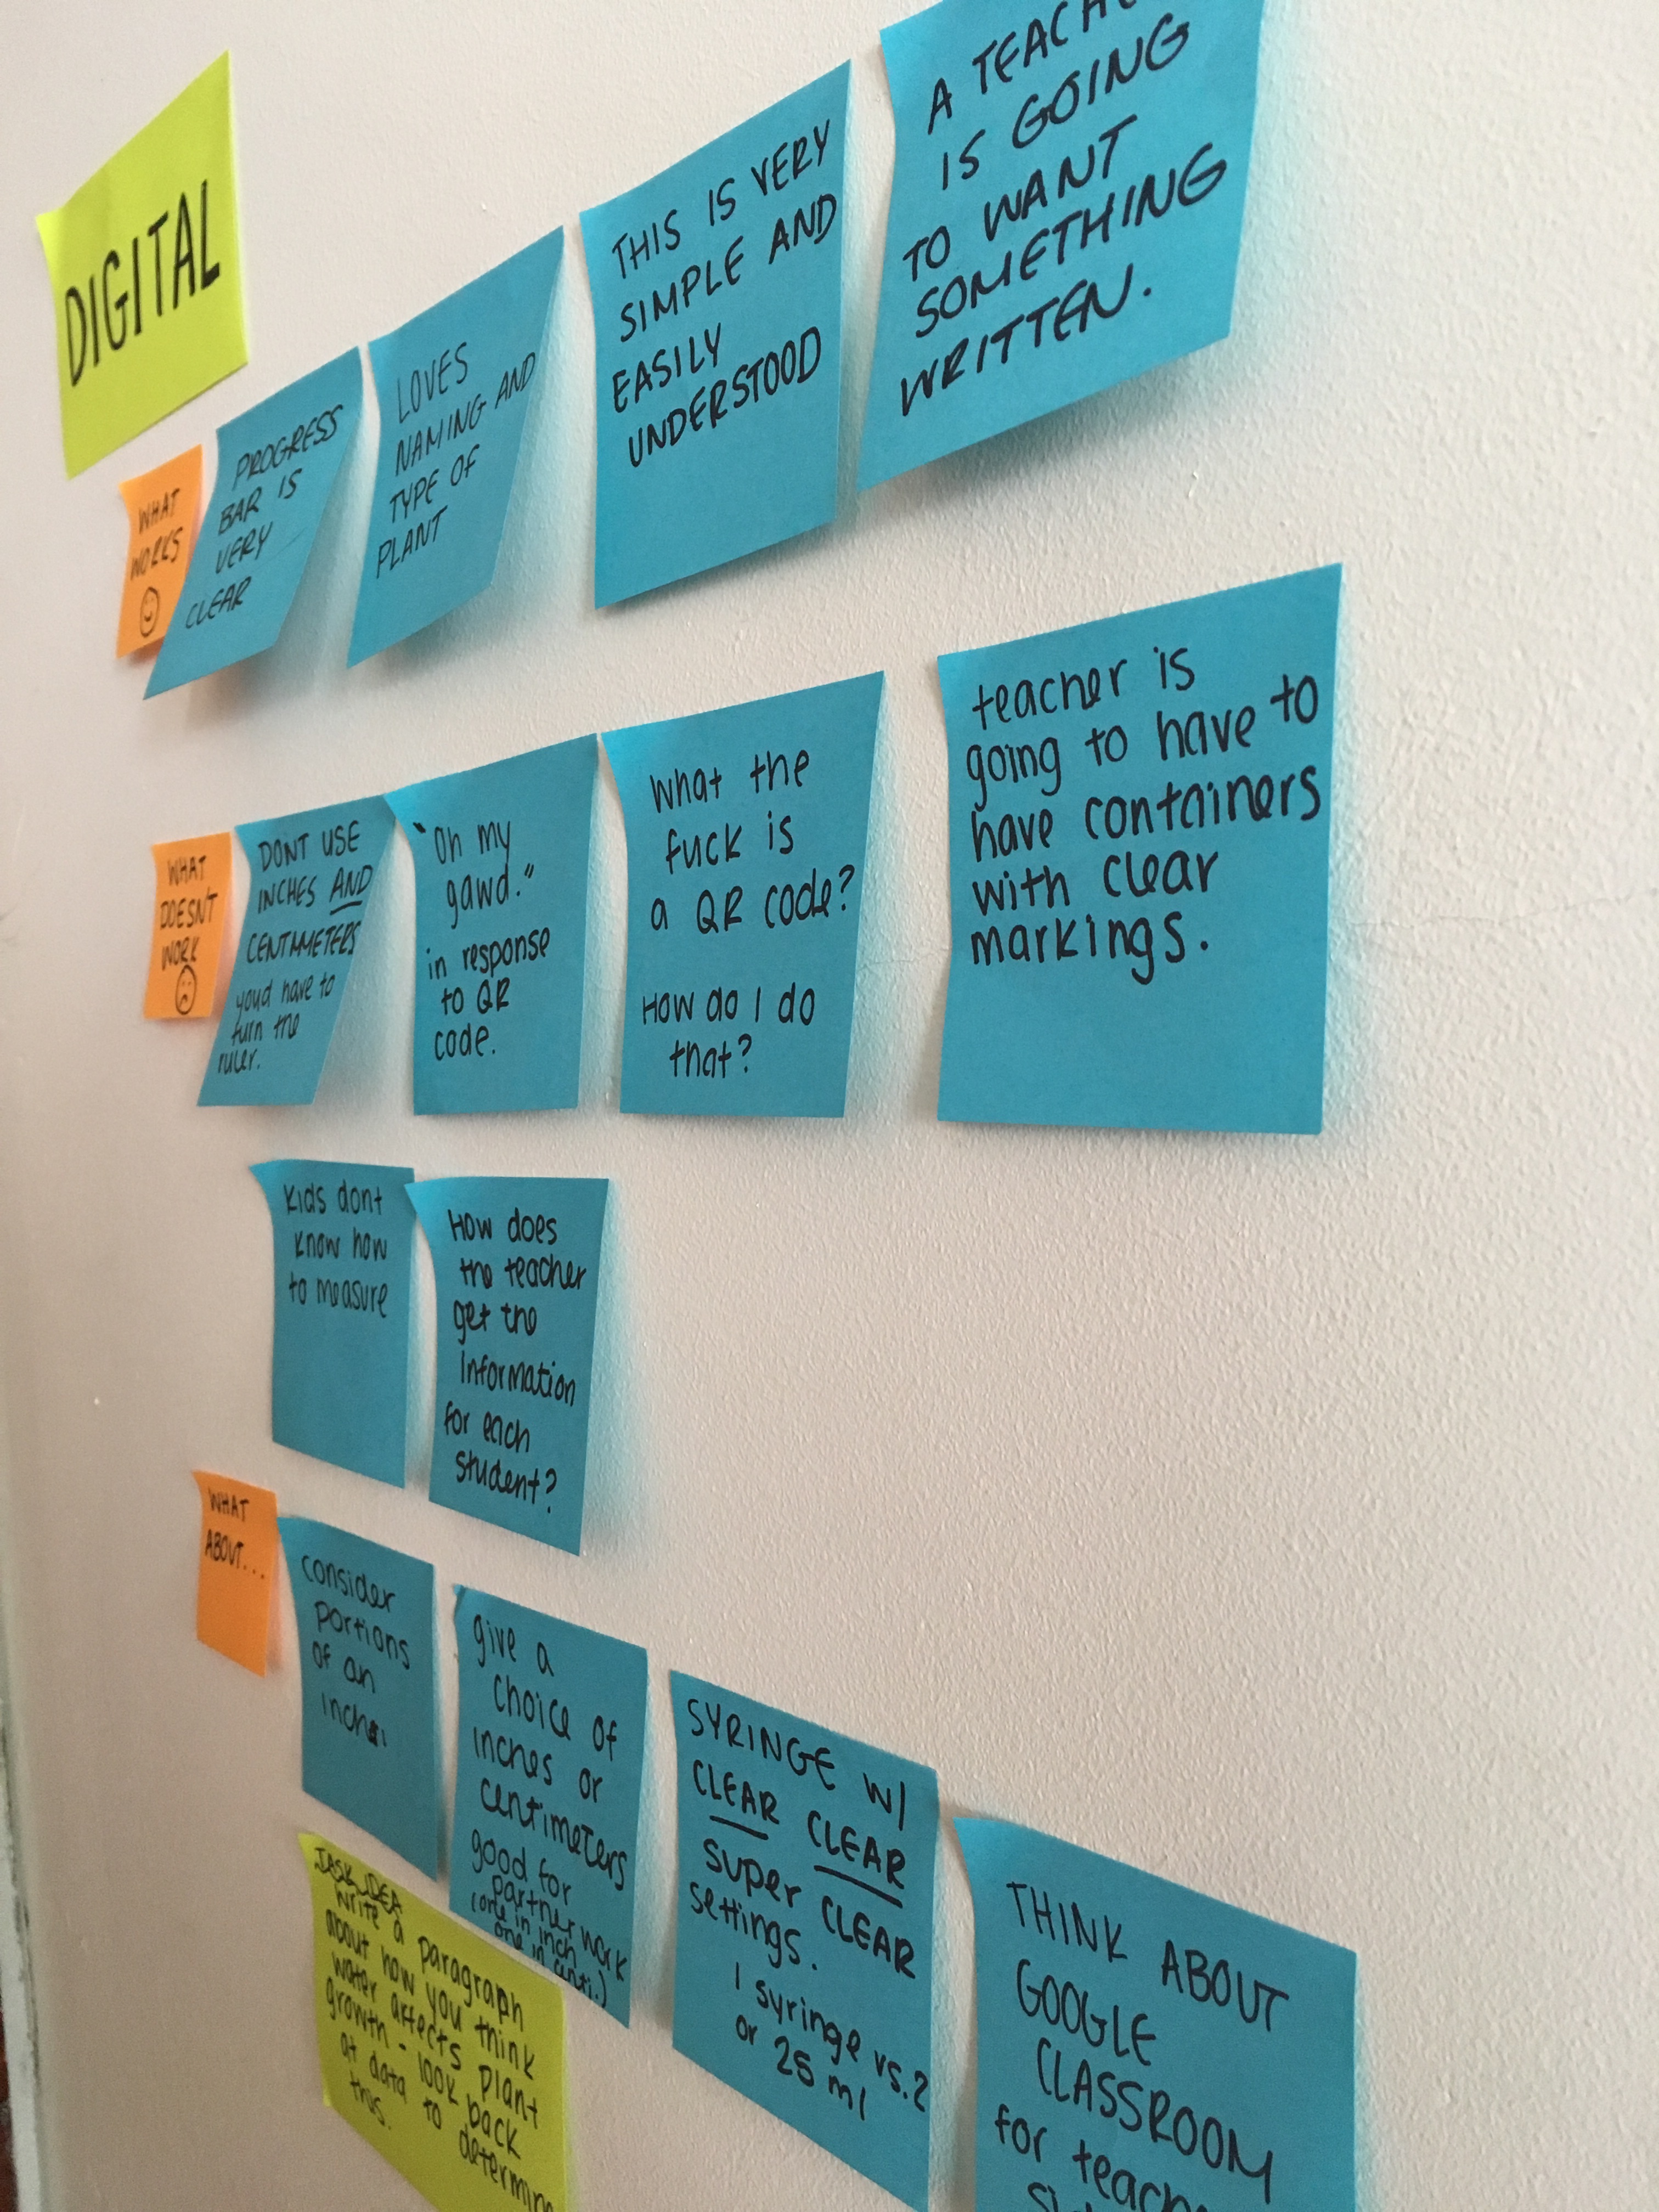 DIGITAL
WHAT
WORKS
PROGRESS
BAR IS
VERY
CLEAR
LOVES
NAMING AND
TYPE OF
PLANT
THIS IS VERY
SIMPLE AND
EASILY
UNDERSTOOD
A
IS GOING
TO WANT
SOMETHING
WRITTEN.
WHAT
DOESN'T
WORK
DONT USE
INCHES AND
CENTIMETERS
youd have to
turn the
ruler.
"Oh my
gawd."
in response
to QR
code.
What the
fuck is
a QR code?
How do I do
that?
teacher is
going to have to
have containers
with clear
markings.
Kids dont
know how
to measure
How does
the teacher
get the
Information
for each
student?
WHAT
ABOUT...
consider
portions
of an
give a
choice of
inches or
centimeters
good for
partner work
(one in inch
one in centi.)
SYRINGE W/
CLEAR CLEAR
super CLEAR
settings.
1 syringe vs. 2
or 25 ml
THINK ABOUT
GOOGLE
CLASSROOM
for
TASK IDEA
write a paragraph
about how you think
water affects plant
growth - look back
at data to determine
this.